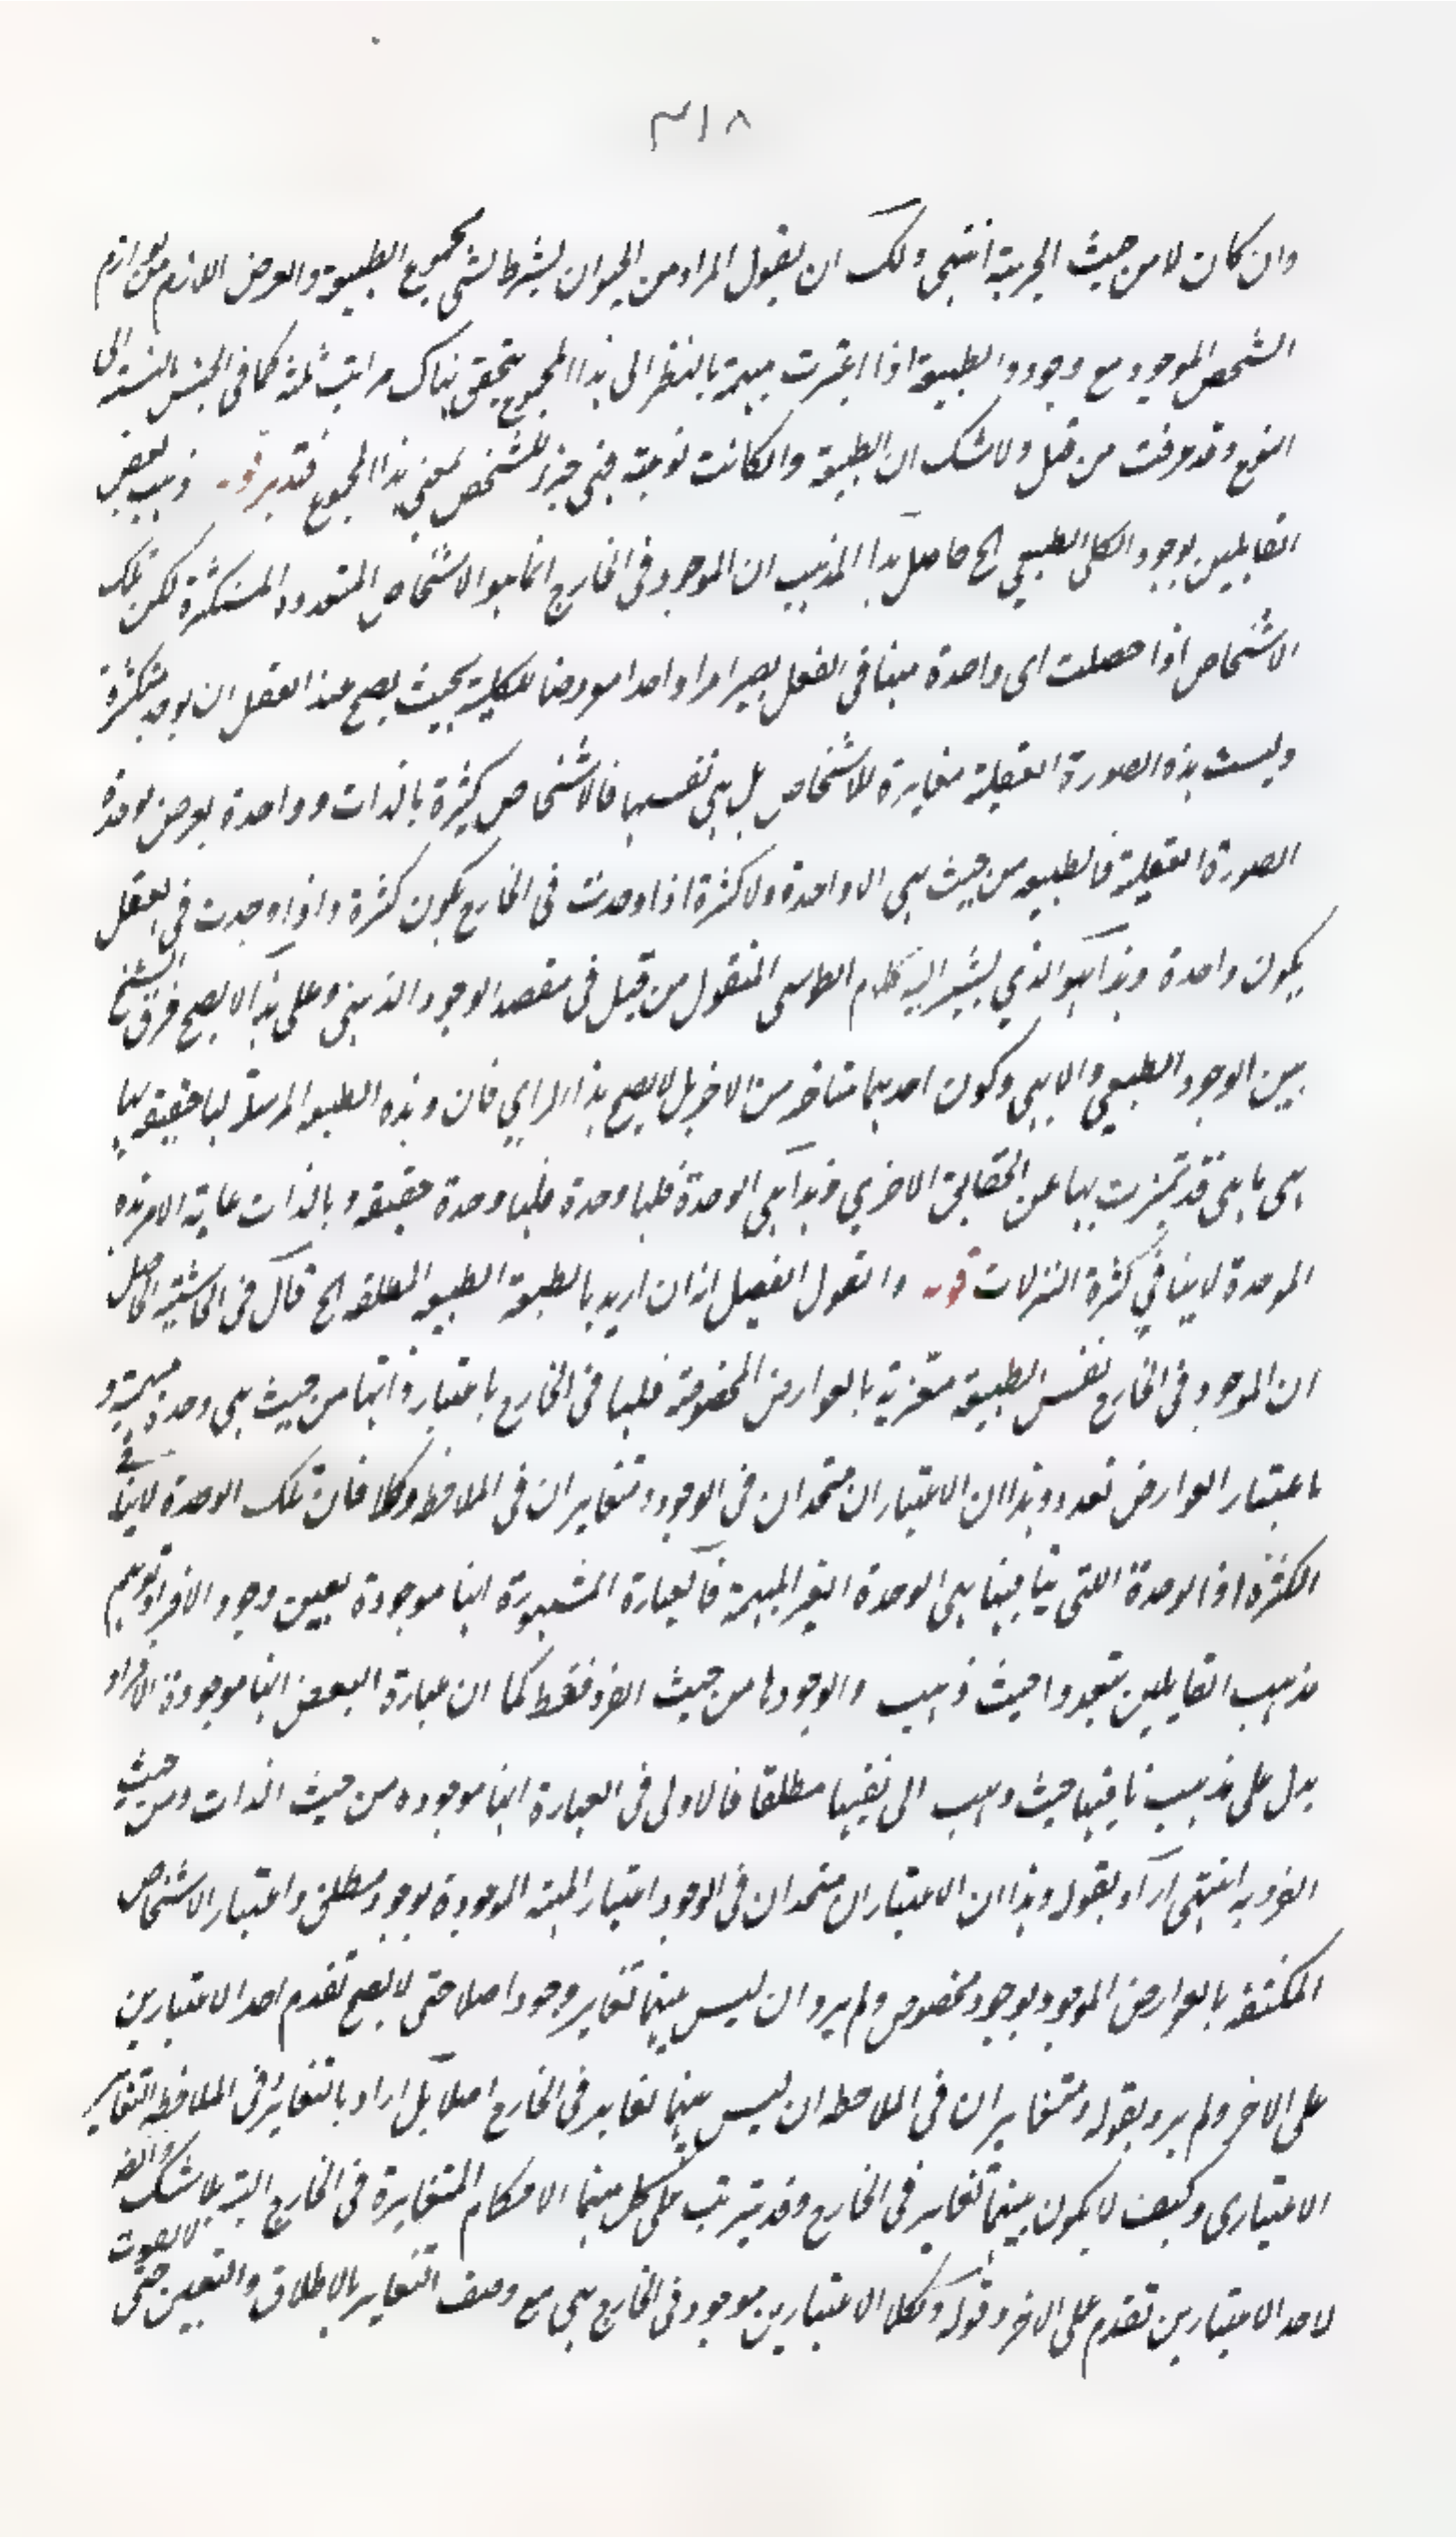 ٣١٨
وان كان لا من حيث الجزئية انتهى ولك ان يقول المراد من الحيوان بشرط لشى مجموع الطبيعة والعرض اللازم من لوازم
الشخص الموجود مع وجود الطبيعة اذا اعتبرت مبهمة بالنظر الى هذا المجموع يتحقق هناك مراتب ثلثة كما فى الجنس بالنسبة الى
النوع وقد عرفت من قبل ولا شك ان الطبيعة وانكانت نوعية فهى جزء للشخص بمعنى هذا المجموع فتدبر قوله ذهب بعض
القايلين بوجود الكلى الطبيعى الخ حاصل هذا المذهب ان الموجود فى الخارج انما هو الاشخاص المتعدده المتكثرة لكن تلك
الاشخاص اذا حصلت اى واحدة منها فى العقل يصير امرا واحدا معروضا للكلية بحيث يصح عند العقل ان يوجد متكثرة
وليست هذه الصورة العقلية مغايرة للاشخاص بل هى نفسها فالاشخاص كثيرة بالذات وواحدة بعرض لوحدة
الصورة العقلية فالطبيعه من حيث هى لا واحدة ولا كثرة اذا وجدت فى الخارج يكون كثرة واذا وجدت فى العقل
يكون واحدة وهذا هو الذي يشير اليه كلام الطوسى المنقول من قبل فى مقصد الوجود الذهنى وعلى هذا لا يصح فرق الشيخ
بين الوجود الطبيعي والالهى وكون احدهما متاخر من الاخر بل لا يصح هذا الراي فان هذه الطبيعه المرسلة لها حقيقه بها
هى ما هى قد تميزت بها عن الحقايق الاخرى وهذا هى الوحدة فلها وحدة فلها وحدة حقيقه وبالذات غاية الامر هذه
الوحدة لا ينافي كثرة التنزلات قوله والقول الفصل ان ان اريد بالطبيعة الطبيعه المطلقه الخ قال فى الحاشية الحاصل
ان الموجود فى الخارج نفس الطبيعة متعزية بالعوارض المخصوصة فلها فى الخارج باعتبار ذاتها من حيث هى وحدة مبهمة و
باعتبار العوارض تعدد وهذا ان الاعتباران متحدان فى الوجود ومتغايران فى الملاحظه وكلا فان تلك الوحدة لاينافي
الكثرة اذ الوحدة اللتى ينافيها هى الوحدة الغير المبهمة فالعبارة المشهورة انها موجودة بعين وجود الافراد توهم
مذهب القايلين بتجردها حيث ذهب والوجودها من حيث الفرد فقط كما ان عبارة البعض انها موجودة الافراد
يدل على مذهب نافيها حيث ذهب الى نفيها مطلقا فالاولى فى العبارة انها موجوده من حيث الذات ومن حيث
الفرديه انتهى اراد بقوله وهذا ان الاعتباران متحدان فى الوجود اعتبار المهية الموجودة بوجود مطلق واعتبار الاشخاص
المكتنفة بالعوارض الموجود بوجود مخصوص ولم يرد ان ليس بينهما تغاير وجود اصلا حتى لا يصح تقدم احد الاعتبارين
على الاخر ولم يرد بقوله ومتغايران فى الملاحظه ان ليس بينهما تغاير فى الخارج اصلا بل اراد بالتغاير فى الملاحظه التغاير
الاعتبارى وكيف لا يكون بينهما تغاير فى الخارج وقد يترتب على كل منهما الاحكام المتغايرة فى الخارج البتة بلا شك وايضا
لاحد الاعتبارين تقدم على الاخر وقوله وكلا الاعتبارين موجود فى الخارج هى مع وصف التغاير بالاطلاق والتعين حتى لا يفوت